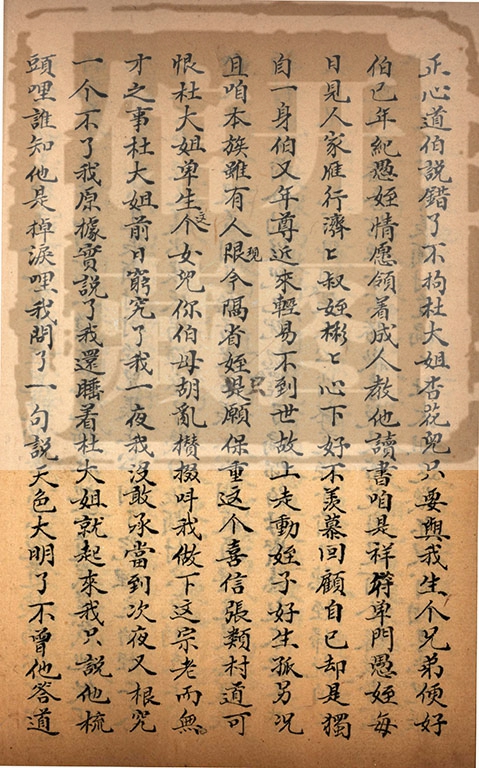 正心道伯說錯了不拘杜大姐杏花兒只要與我生个兄弟便好
伯已年紀愚姪情愿領着成人教他讀書咱是祥符单門愚姪每
日見人家雁行濟匕叔姪彬匕心下好不羨慕回顧自已却是獨
自一身伯又年尊近來輕易不到世故上走動姪子好生孤另况
且咱本族雖有人限現今隔省姪只是願保重這个喜信張類村道可
恨杜大姐单生这个女兒你伯母胡亂攅掇呌我做下这宗老而無
才之事杜大姐前日窮究了我一夜我沒敢承當到次夜又根究
一个不了我原據實説了我還睡着杜大姐就起來我只說他梳
頭哩誰知他是掉淚哩我問了一句説天色大明了不曾他答道